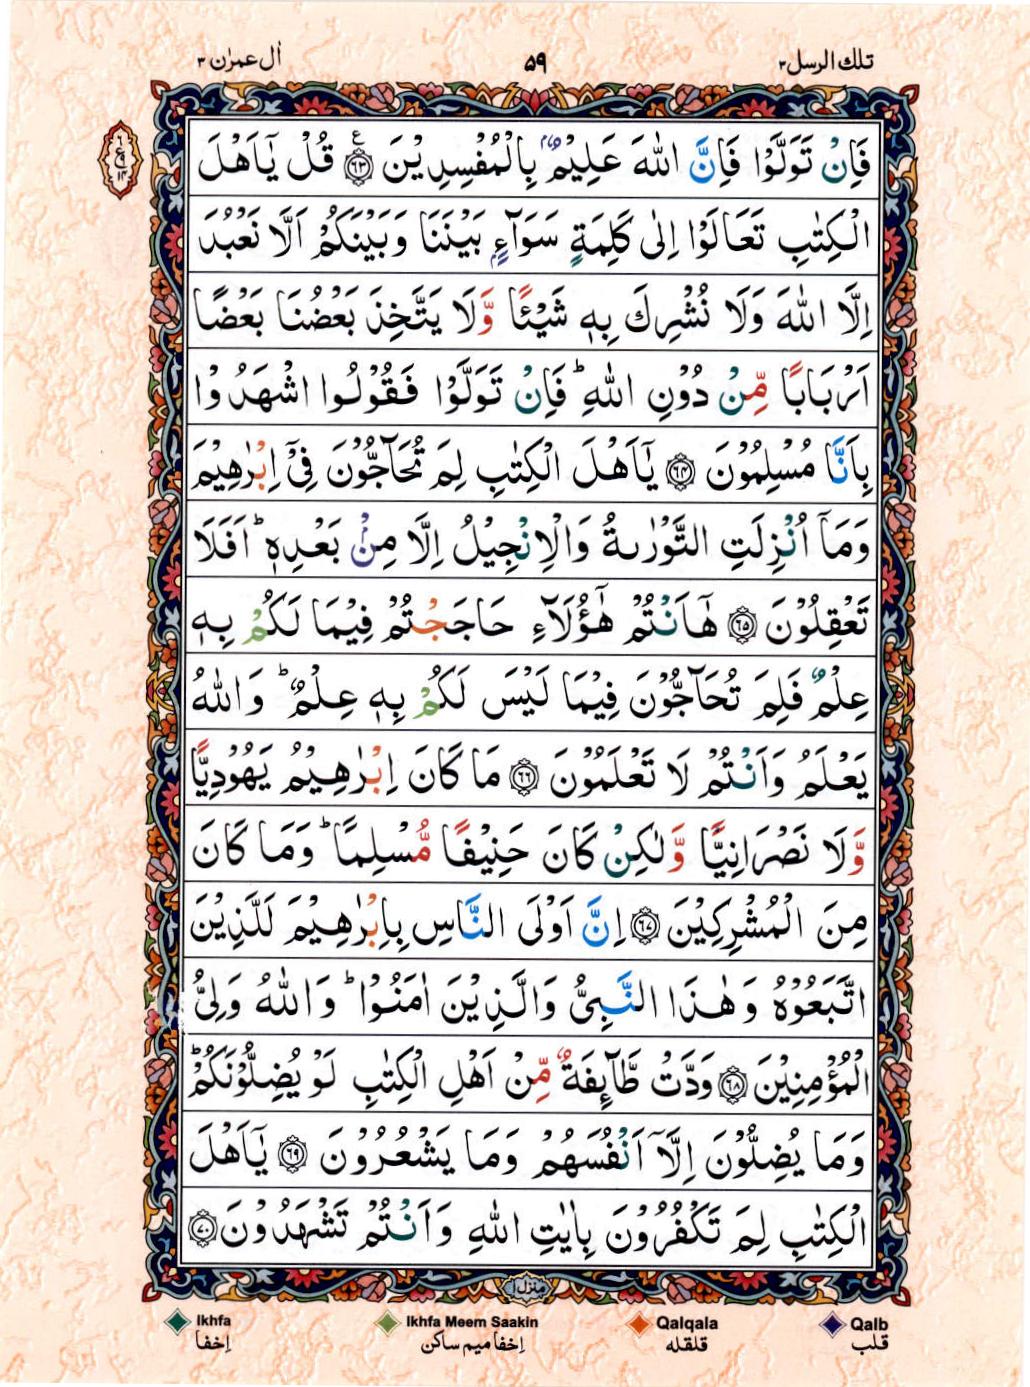 تلك الرسل ٣ ٥٩ اٰل عمرٰن ٣
فَاِنْ تَوَلَّوْا فَاِنَّ اللّٰهَ عَلِيْمٌۢ بِالْمُفْسِدِيْنَ ﴿٦٣﴾ ع قُلْ يٰٓاَهْلَ
الْكِتٰبِ تَعَالَوْا اِلٰى كَلِمَةٍ سَوَآءٍۭ بَيْنَنَا وَبَيْنَكُمْ اَلَّا نَعْبُدَ
اِلَّا اللّٰهَ وَلَا نُشْرِكَ بِهٖ شَيْئًا وَّلَا يَتَّخِذَ بَعْضُنَا بَعْضًا
اَرْبَابًا مِّنْ دُوْنِ اللّٰهِ ؕ فَاِنْ تَوَلَّوْا فَقُوْلُوا اشْهَدُوْا
بِاَنَّا مُسْلِمُوْنَ ﴿٦٤﴾ يٰٓاَهْلَ الْكِتٰبِ لِمَ تُحَآجُّوْنَ فِيْٓ اِبْرٰهِيْمَ
وَمَآ اُنْزِلَتِ التَّوْرٰىةُ وَالْاِنْجِيْلُ اِلَّا مِنْۢ بَعْدِهٖ ؕ اَفَلَا
تَعْقِلُوْنَ ﴿٦٥﴾ هٰٓاَنْتُمْ هٰٓؤُلَآءِ حَاجَجْتُمْ فِيْمَا لَكُمْ بِهٖ
عِلْمٌ فَلِمَ تُحَآجُّوْنَ فِيْمَا لَيْسَ لَكُمْ بِهٖ عِلْمٌ ؕ وَاللّٰهُ
يَعْلَمُ وَاَنْتُمْ لَا تَعْلَمُوْنَ ﴿٦٦﴾ مَا كَانَ اِبْرٰهِيْمُ يَهُوْدِيًّا
وَّلَا نَصْرَانِيًّا وَّلٰكِنْ كَانَ حَنِيْفًا مُّسْلِمًا ؕ وَمَا كَانَ
مِنَ الْمُشْرِكِيْنَ ﴿٦٧﴾ اِنَّ اَوْلَى النَّاسِ بِاِبْرٰهِيْمَ لَلَّذِيْنَ
اتَّبَعُوْهُ وَهٰذَا النَّبِيُّ وَالَّذِيْنَ اٰمَنُوْا ؕ وَاللّٰهُ وَلِيُّ
الْمُؤْمِنِيْنَ ﴿٦٨﴾ وَدَّتْ طَّآئِفَةٌ مِّنْ اَهْلِ الْكِتٰبِ لَوْ يُضِلُّوْنَكُمْ ؕ
وَمَا يُضِلُّوْنَ اِلَّآ اَنْفُسَهُمْ وَمَا يَشْعُرُوْنَ ﴿٦٩﴾ يٰٓاَهْلَ
الْكِتٰبِ لِمَ تَكْفُرُوْنَ بِاٰيٰتِ اللّٰهِ وَاَنْتُمْ تَشْهَدُوْنَ ﴿٧٠﴾
منزل ١
Ikhfa Ikhfa Meem Saakin Qalqala Qalb
إخفا إخفا ميم ساكن قلقله قلب